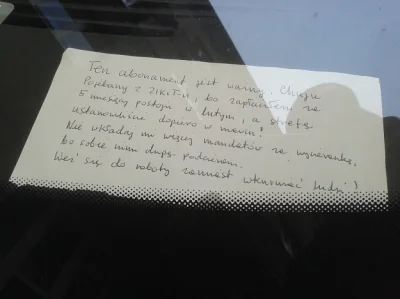 Ten abonament jest ważny. Chuju
Pojebany z ZIKiTu, bo zapłaciłem za
5 miesięcy postoju w lutym, a strefę
ustanowiliście dopiero w marcu!
Nie wkładaj mi więcej mandatów za wycieraczkę,
bo sobie nimi dupę podcieram.
Weź się do roboty zamiast wkurwiać ludzi!